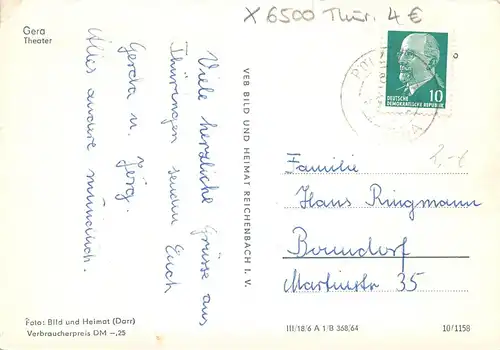 Gera
Theater
X 6500 Thür. 4 €
Viele herzliche Grüsse aus
Thüringen senden Euch
Gerda u. Jörg.
Alles andere mündlich.
VEB BILD UND HEIMAT REICHENBACH I. V.
10
DEUTSCHE
DEMOKRATISCHE REPUBLIK
Familie
Hans Ringmann
Martinstr 35
Foto: Bild und Heimat (Darr)
Verbraucherpreis DM -,25
III/18/6 A 1/B 368/64
10/1158